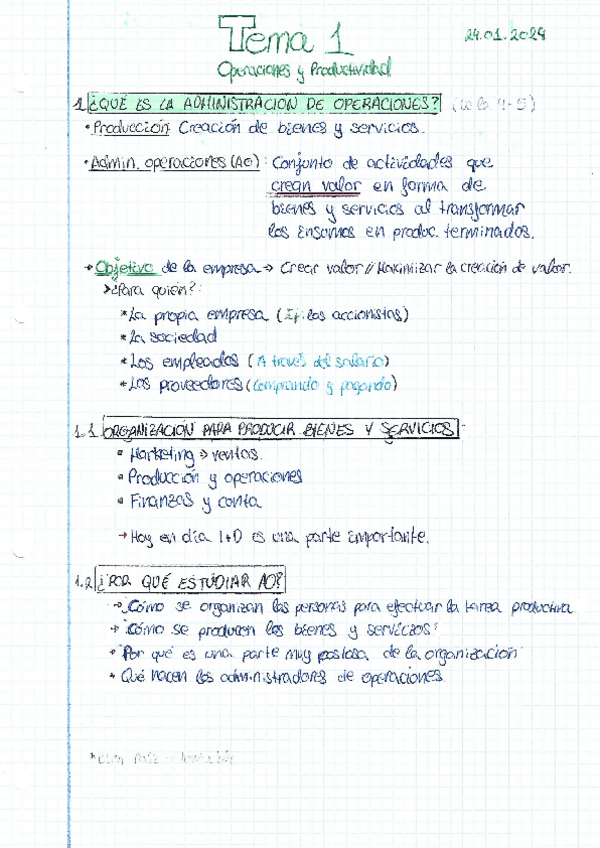 Tema 1
24.01.2024
Operaciones y Productividad
1. ¿QUÉ ES LA ADMINISTRACIÓN DE OPERACIONES? 4-5)
• Producción: Creación de bienes y servicios.
• Admin. operaciones (AO): Conjunto de actividades que
crean valor en forma de
bienes y servicios al transformar
los insumos en produc. terminados.
→ Objetivo de la empresa → Crear valor // Maximizar la creación de valor.
>¿Para quién?:
* La propia empresa (Ej: los accionistas)
* La sociedad
* Los empleados (A través del salario)
* Los proveedores (Comprando y pagando)
1.1 ORGANIZACIÓN PARA PRODUCIR BIENES Y SERVICIOS:
• Marketing → ventas.
• Producción y operaciones
• Finanzas y conta
→ Hoy en día I+D es una parte importante.
1.2 ¿POR QUÉ ESTUDIAR AO?
→ Cómo se organizan las personas para efectuar la tarea productiva
→ Cómo se producen los bienes y servicios
• Por qué es una parte muy costosa de la organización
• Qué hacen los administradores de operaciones.